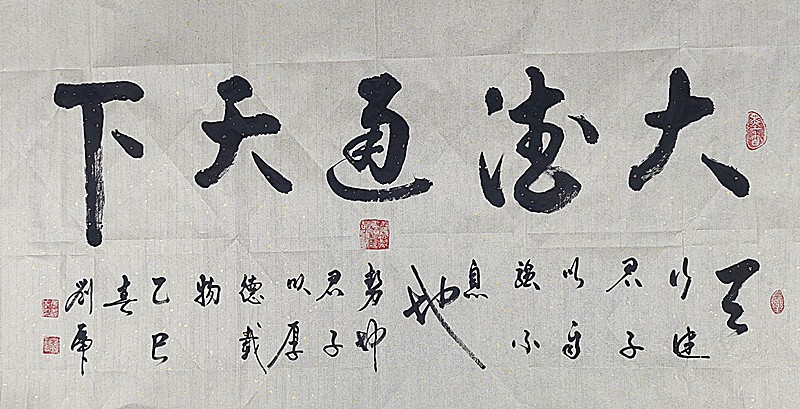 大德通天下
天
行健
君子
以自
強不
息
地
勢坤
君子
以厚
德載
物
乙巳
春
劉